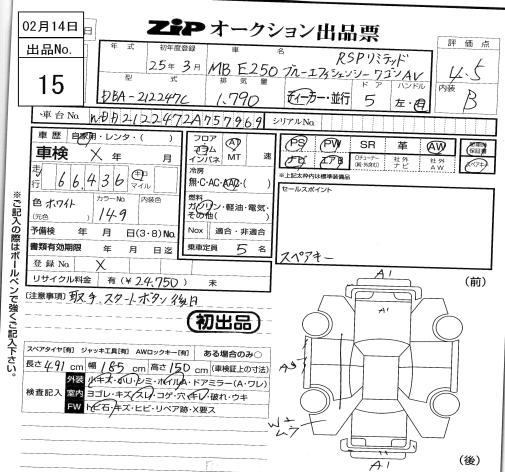 02月14日
出品No.
15
ZIP オークション出品票
年式 初年度登録 車名 評価点
25年3月 MB E250 RSPリミテッド ブルーエフィシェンシーワゴンAV 4.5
型式 排気量 ドア ハンドル 内装
DBA-212247C 1.790 ディーラー・並行 5 左・右 B
車台No. WDD2122472A757969 シリアルNo.
車歴 自家用・レンタ・( )
車検 X 年 月
走行 66,436 キロ マイル
色 ホワイト (元色) カラーNo. 149 内装色
予備検 年 月 日(3・8)No.
書類有効期限 年 月 日迄
登録No. X
リサイクル料金 有(¥24,750) 未
フロア コラム インパネ AT MT 速
冷房 無・C・AC・AAC・( )
燃料 ガソリン・軽油・電気・その他( )
Nox 適合・非適合
乗車定員 5 名
PS PW SR 革 AW
ナビ エアB 社外ナビ 社外AW
保証書
スペアキー
※上記太枠内は標準装備品
セールスポイント
スペアキー
[注意事項] 取手、スタートボタン後日
初出品
スペアタイヤ[有] ジャッキ工具[有] AWロックキー[有] ある場合のみ○
長さ 491 cm 幅 185 cm 高さ 150 cm (車検証上の寸法)
検査記入
外装 小キズ・小U・シミ・ホイルA・ドアミラー(A・ワレ)
室内 ヨゴレ・キズ・スレ・コゲ・穴・キレ・破れ・ウキ
FW トビ石・キズ・ヒビ・リペア跡・X要ス
※ご記入の際はボールペンで強くご記入下さい。
(前)
A1
A1
A1
(後)